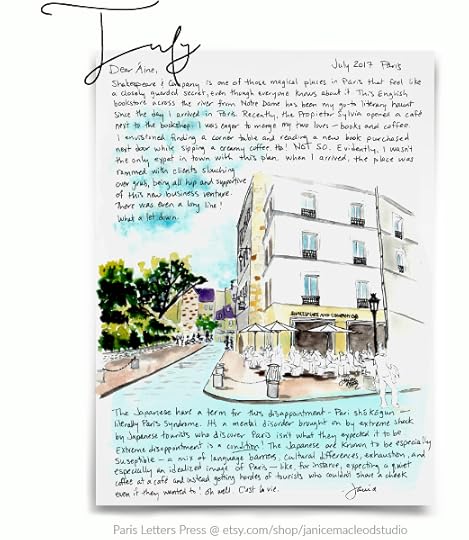 July
July 2017 Paris
Dear Áine,
Shakespeare & Company is one of those magical places in Paris that feel like
a closely guarded secret, even though everyone knows about it. This English
bookstore across the river from Notre Dame has been my go-to literary haunt
since the day I arrived in Paris. Recently, the Propietor Sylvia opened a café
next to the bookshop. I was eager to merge my two loves - books and coffee.
I envisioned finding a corner table and reading a new book purchased
next door while sipping a creamy coffee. Ha! NOT SO. Evidently, I wasn't
the only expat in town with this plan. When I arrived, the place was
rammed with clients slouching
over grub, being all hip and supportive
of this new business venture.
There was even a long line!
What a let down.
SHAKESPEARE AND COMPANY
The Japanese have a term for this disappointment - Pari shōkōgun —
literally Paris Syndrome. It's a mental disorder brought on by extreme shock
by Japanese tourists who discover Paris isn't what they expected it to be.
Extreme disappointment is a condition! The Japanese are known to be especially
suseptible — a mix of language barriers, cultural differences, exhaustion, and
especially an idealized image of Paris — like, for instance, expecting a quiet
coffee at a café and instead getting hordes of tourists who couldn't share a
even if they wanted to! Oh well. C'est la vie.
Janice
Paris Letters Press @ etsy.com/shop/janicemacleodstudio